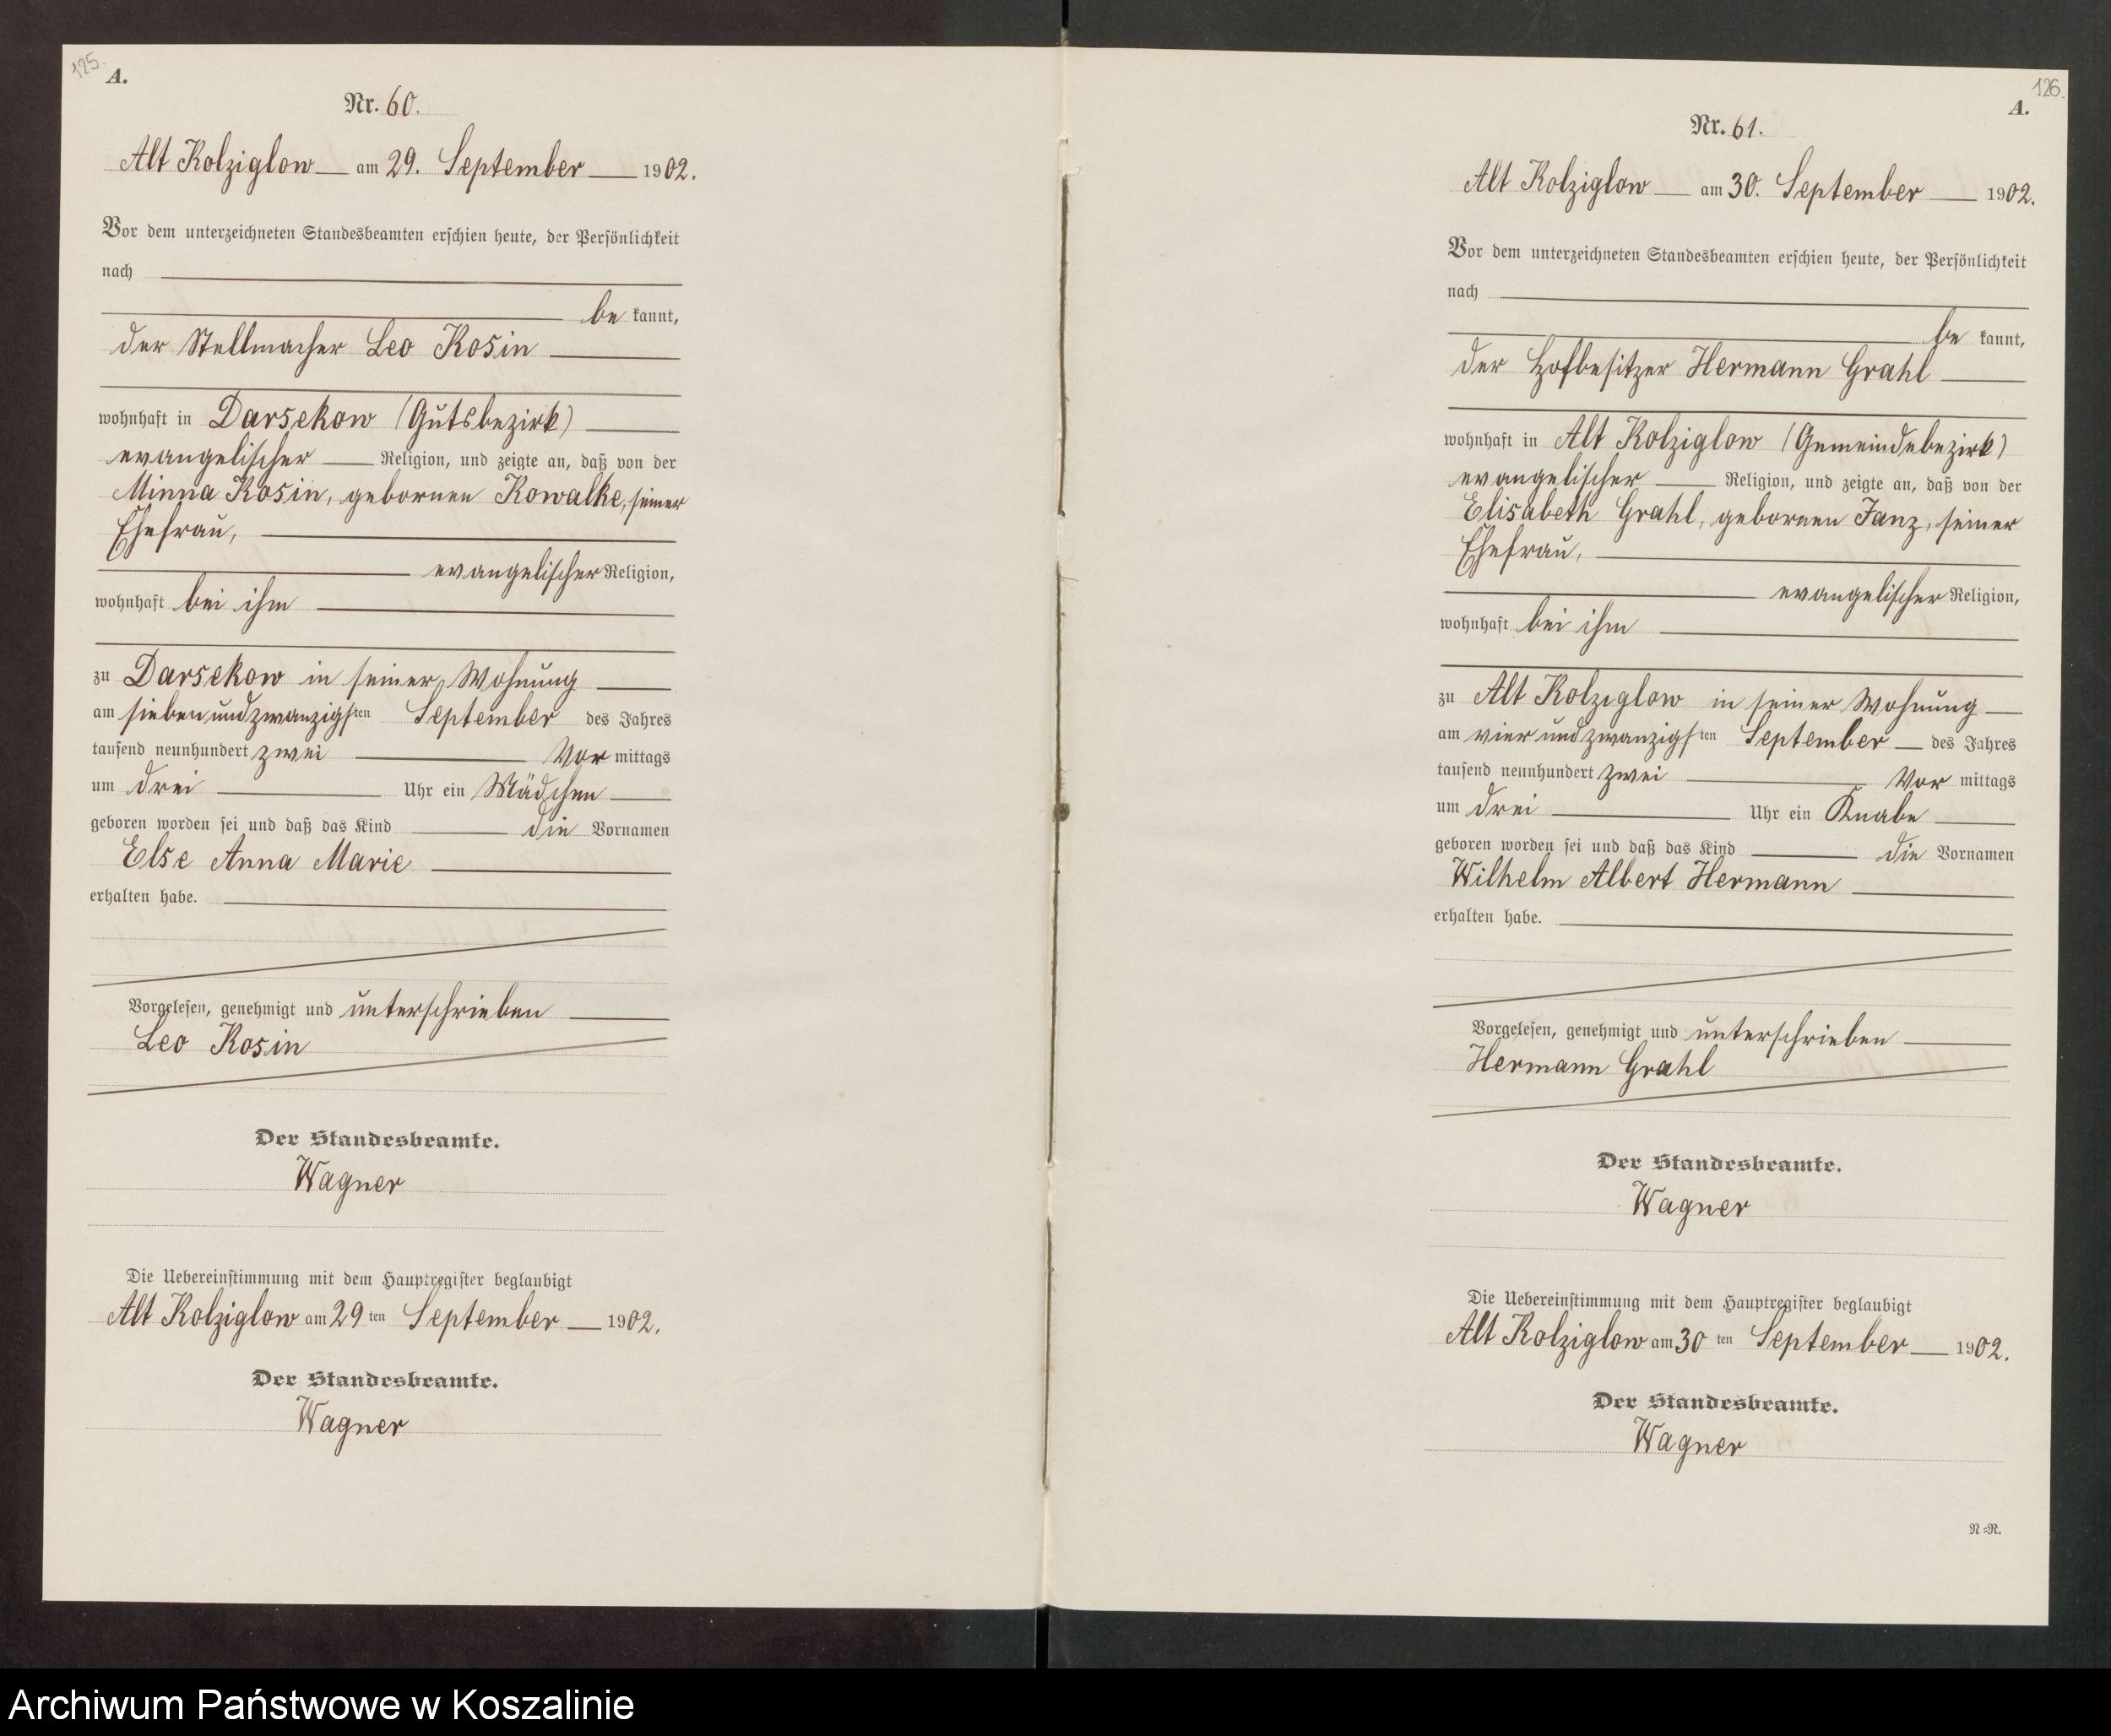 125.
A.
Nr. 60.
Alt Kolziglow am 29. September 1902.
Vor dem unterzeichneten Standesbeamten erschien heute, der Persönlichkeit
nach
be kannt,
der Stellmacher Leo Kosin
wohnhaft in Darsekow (Gutsbezirk)
evangelischer Religion, und zeigte an, daß von der
Minna Kosin, gebornen Kowalke, seiner
Ehefrau,
evangelischer Religion,
wohnhaft bei ihm
zu Darsekow in seiner Wohnung
am sieben und zwanzigsten September des Jahres
tausend neunhundert zwei Vor mittags
um drei Uhr ein Mädchen
geboren worden sei und daß das Kind die Vornamen
Else Anna Marie
erhalten habe.
Vorgelesen, genehmigt und unterschrieben
Leo Kosin
Der Standesbeamte.
Wagner
Die Uebereinstimmung mit dem Hauptregister beglaubigt
Alt Kolziglow am 29 ten September 1902.
Der Standesbeamte.
Wagner
126.
A.
Nr. 61.
Alt Kolziglow am 30. September 1902.
Vor dem unterzeichneten Standesbeamten erschien heute, der Persönlichkeit
nach
be kannt,
der Hofbesitzer Hermann Grahl
wohnhaft in Alt Kolziglow (Gemeindebezirk)
evangelischer Religion, und zeigte an, daß von der
Elisabeth Grahl, gebornen Janz, seiner
Ehefrau,
evangelischer Religion,
wohnhaft bei ihm
zu Alt Kolziglow in seiner Wohnung
am vier und zwanzigsten September des Jahres
tausend neunhundert zwei Vor mittags
um drei Uhr ein Knabe
geboren worden sei und daß das Kind die Vornamen
Wilhelm Albert Hermann
erhalten habe.
Vorgelesen, genehmigt und unterschrieben
Hermann Grahl
Der Standesbeamte.
Wagner
Die Uebereinstimmung mit dem Hauptregister beglaubigt
Alt Kolziglow am 30 ten September 1902.
Der Standesbeamte.
Wagner
N=R.
Archiwum Państwowe w Koszalinie